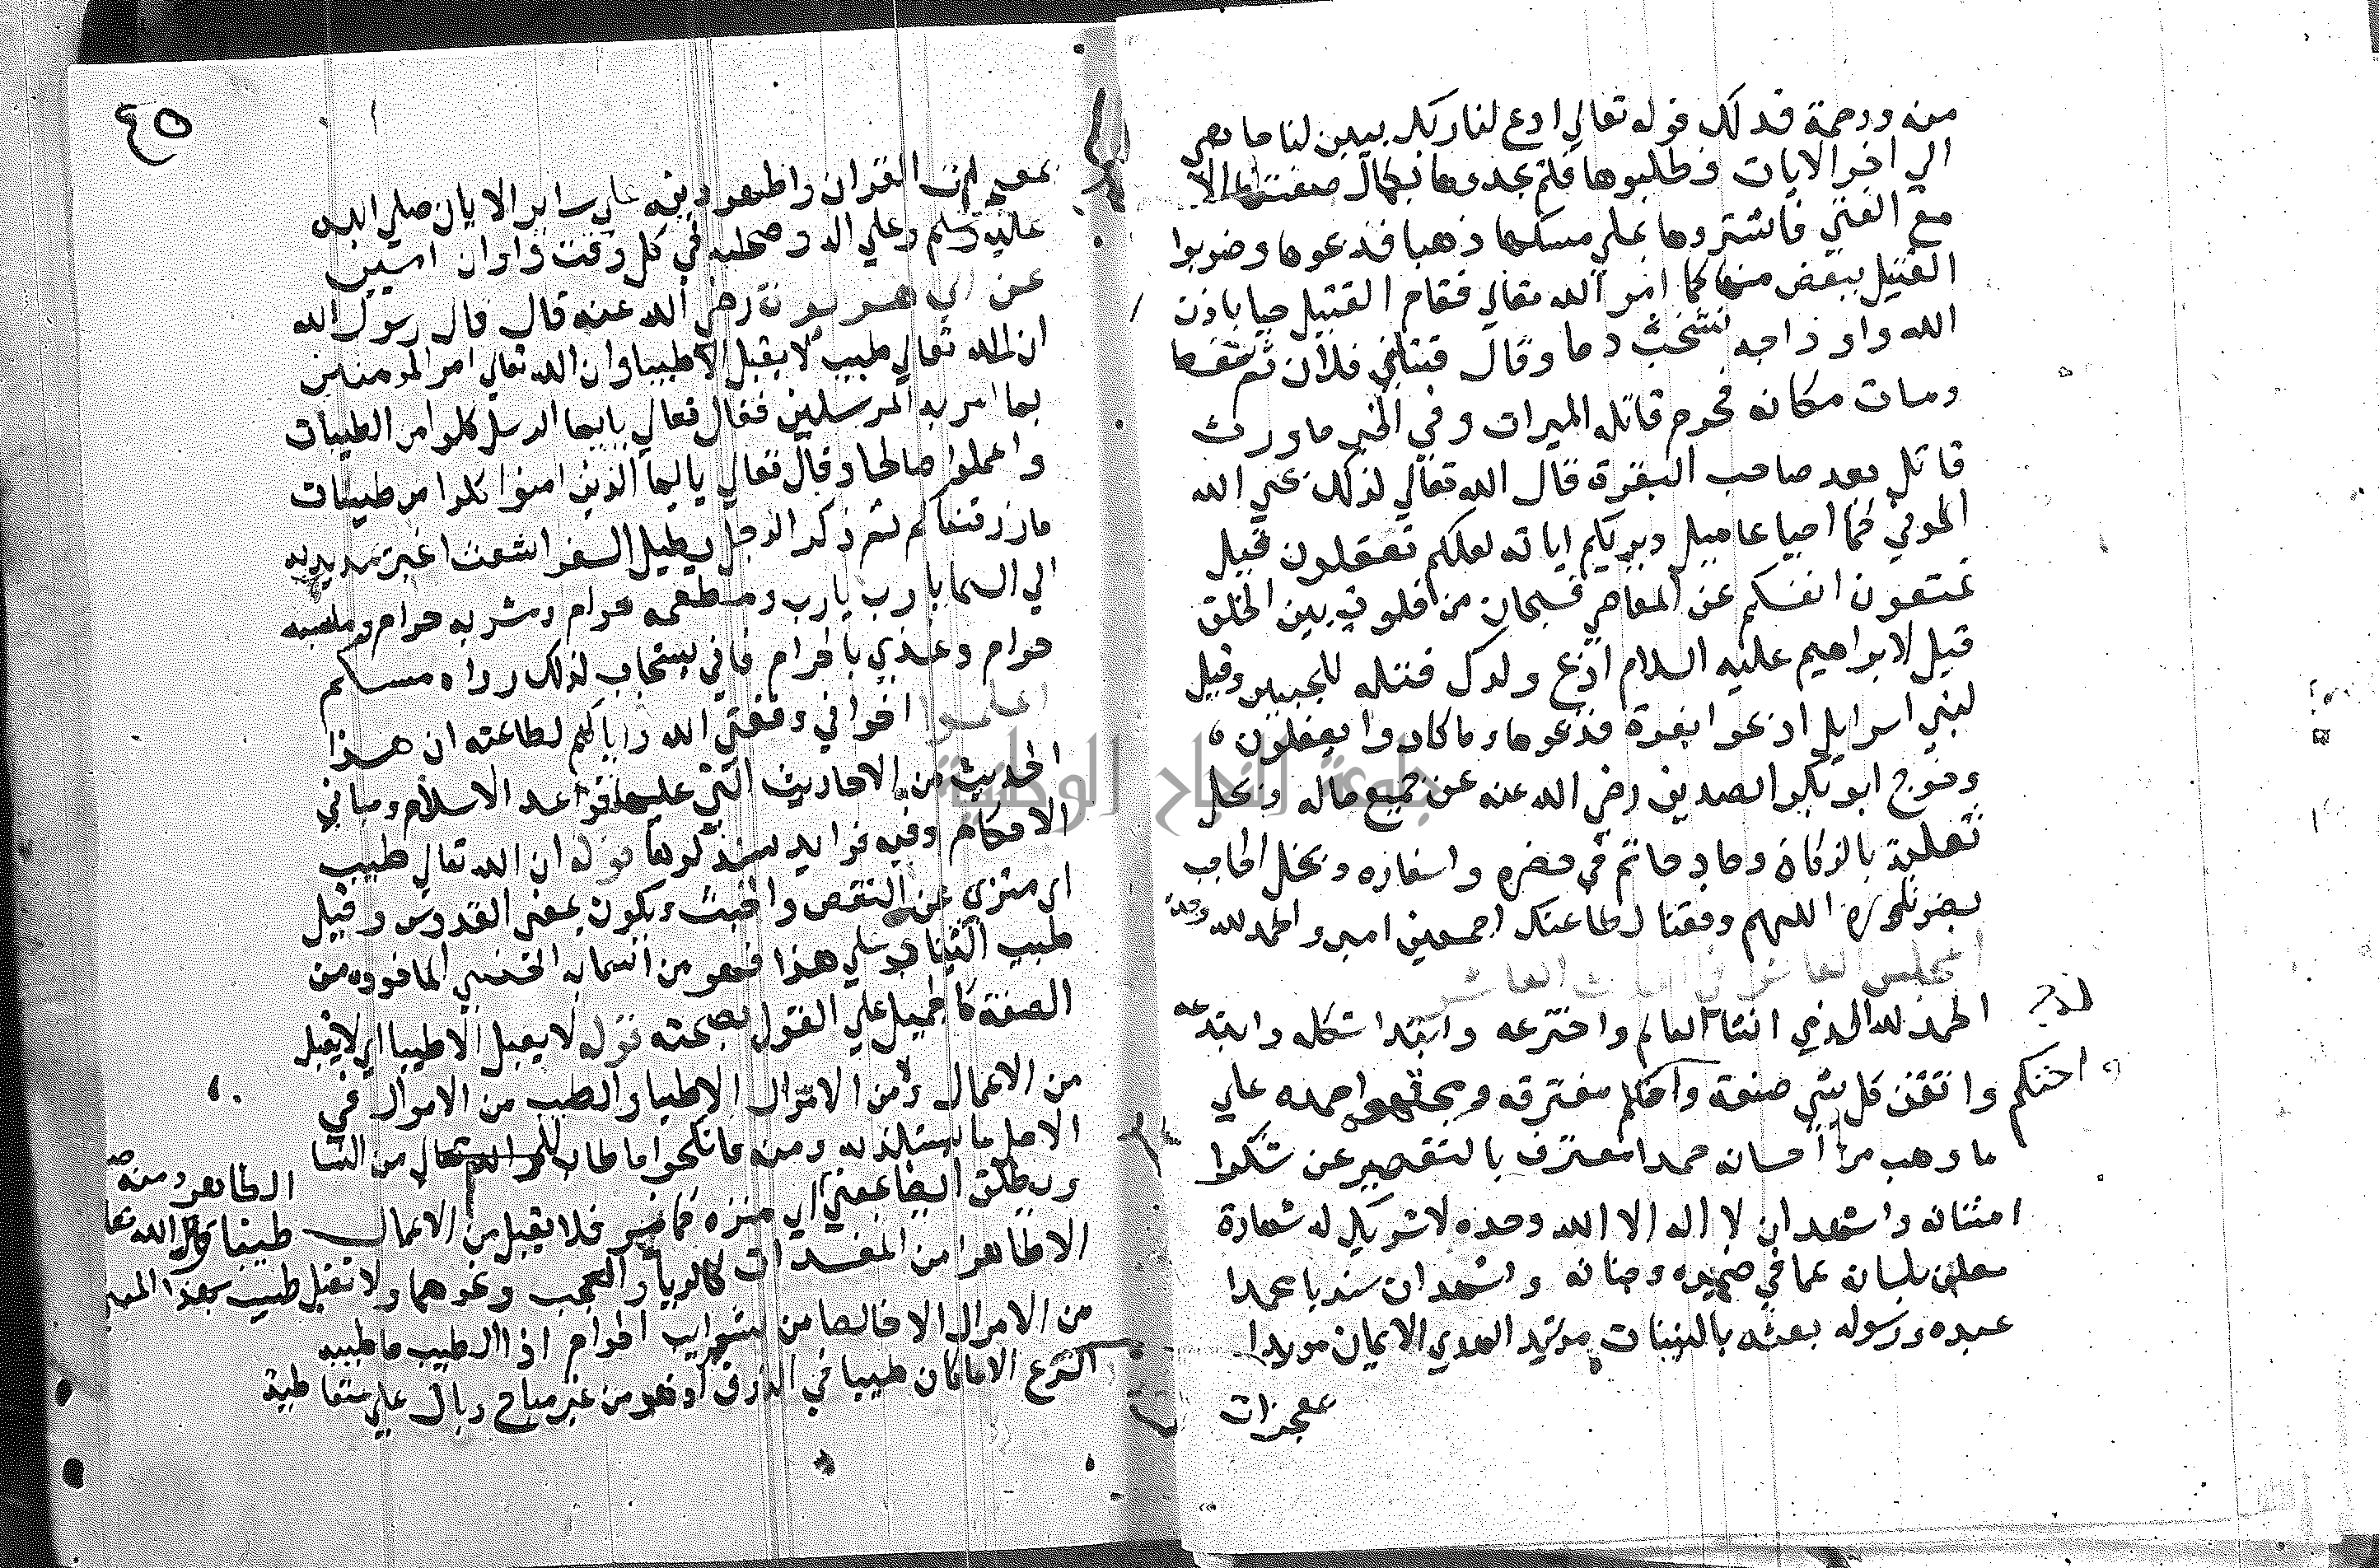 منه ورحمة فدلك قوله تعالي ادع لنا ربك يبين لنا ما هي
الي اخر الايات فطلبوها فلم يجدوها بكمال صفتها الا
مع الفتي فاشتروها بملي مسكها ذهبا فذبحوها وضربوا
القتيل ببعض منها كما امر الله تعالي فقام القتيل حيا باذن
الله واوداجه تشخب دما وقال قتلني فلان ثم سقط
ومات مكانه فحرم قاتله الميراث وفي الخبر ما ورث
قاتل بعد صاحب البقرة قال الله تعالي كذلك يحي الله
الموتي كما احيا عاميل ويريكم اياته لعلكم تعقلون قيل
تمنعون انفسكم عن المعاصي فسبحان من فاوت بين الخلق
قيل لابراهيم عليه السلام اذبح ولدك فتله للجبين وقيل
لبني اسرايل اذبحوا بقرة فذبحوها وما كادوا يفعلون
وخرج ابو بكر الصديق رضي الله عنه عن جميع ماله وبخل
ثعلبة بالزكاة وجاد حاتم في حضره واسفاره وبخل الحاجب
بضو ناره اللهم وفقنا لطاعتك اجمعين امين والحمد لله وحده
المجلس العاشر في الحديث العاشر
الحمد لله الذي انشا العالم واخترعه وابتدا شكله وابتدعه
واتقن كل شي صنعة واحكم مفترقه ومجتمعه احمده علي
ما وهب من احسانه حمدا معترف بالتقصير عن شكر
امتنانه واشهد ان لا اله الا الله وحده لا شريك له شهادة
معلن بلسانه عما في ضميره وجنانه واشهد ان سيدنا محمدا
عبده ورسوله بعثه بالبينات مويد الهدي الايمان مويدا
معجزات
٤٥
علي ساير الاديان صلي الله
عليه وسلم وعلي اله وصحبه في كل وقت واوان امين
عن ابي هريرة رضي الله عنه قال قال رسول الله
ان الله تعالي طيب لا يقبل الا طيبا وان الله تعالي امر المومنين
بما امر به المرسلين فقال تعالي يا ايها الرسل كلوا من الطيبات
واعملوا صالحا وقال تعالي يا ايها الذين امنوا كلوا من طيبات
ما رزقناكم ثم ذكر الرجل يطيل السفر اشعث اغبر يمد يديه
الي السما يا رب يا رب ومطعمه حرام ومشربه حرام وملبسه
حرام وغذي بالحرام فاني يستجاب لذلك رواه مسلم
اعلموا اخواني وفقني الله واياكم لطاعته ان هذا
الحديث من الاحاديث التي عليها قواعد الاسلام ومباني
الاحكام وفيه فوايد سنذكرها قوله ان الله تعالي طيب
اي منزه عن النقص والخبث ويكون بمعني القدوس وقيل
طيب الثنا وعلي هذا فهو من اسمايه الحسني الماخوذ من
الصفة كالجميل علي القول بصحته قوله لا يقبل الا طيبا اي لا يقبل
من الاعمال ولا من الاموال الا طيبا والطيب من الاموال في
الاصل ما يستلذ به ومنه فانكحوا ما طاب لكم من النسا
ويطلق ايضا بمعني الطاهر ومنه
فلا يقبل من الاعمال
الا طاهرا من المفسدات كالريا والعجب ونحوهما ولا تقبل طيب بهذا المعني
من الاموال الا خالصا من شوايب الحرام اذ الطيب ما طيبه
الشرع